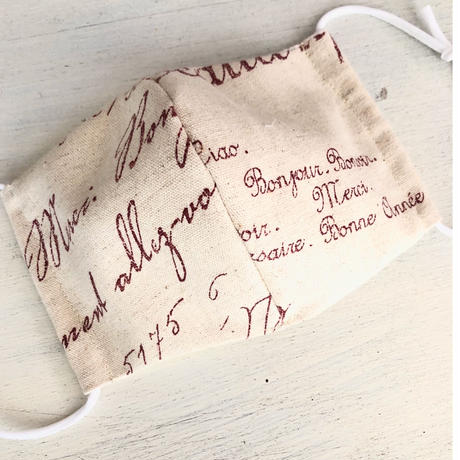 Bon
Mer.
nent allez-vo
5175 6
Ciao.
Bonjour. Bonsoir.
Merci.
oir.
saire. Bonne Année